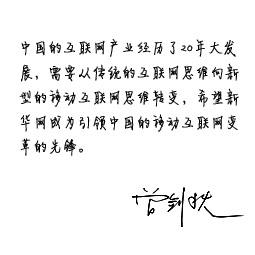 中国的互联网产业经历了20年大发
展，需要从传统的互联网思维向新
型的移动互联网思维转变，希望新
华网成为引领中国的移动互联网变
革的先锋。
曾剑秋